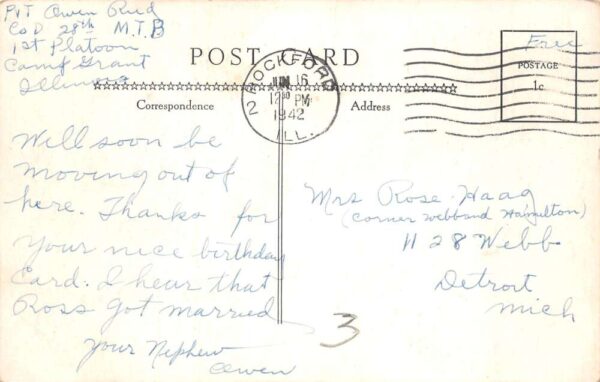 Pvt Owen Rued
Co D 28th M.T.B
1st Platoon
Camp Grant
Illinois
POST CARD
Free
POSTAGE
1c
ROCKFORD
2
JUN 16
12 30 PM
1942
ILL.
Correspondence
Address
Will soon be
moving out of
here. Thanks for
your nice birthday
Card. I hear that
Ross got married
your Nephew
Owen
Mrs Rose Haag
(corner Webb and Hamilton)
1128 Webb
Detroit
Mich
3